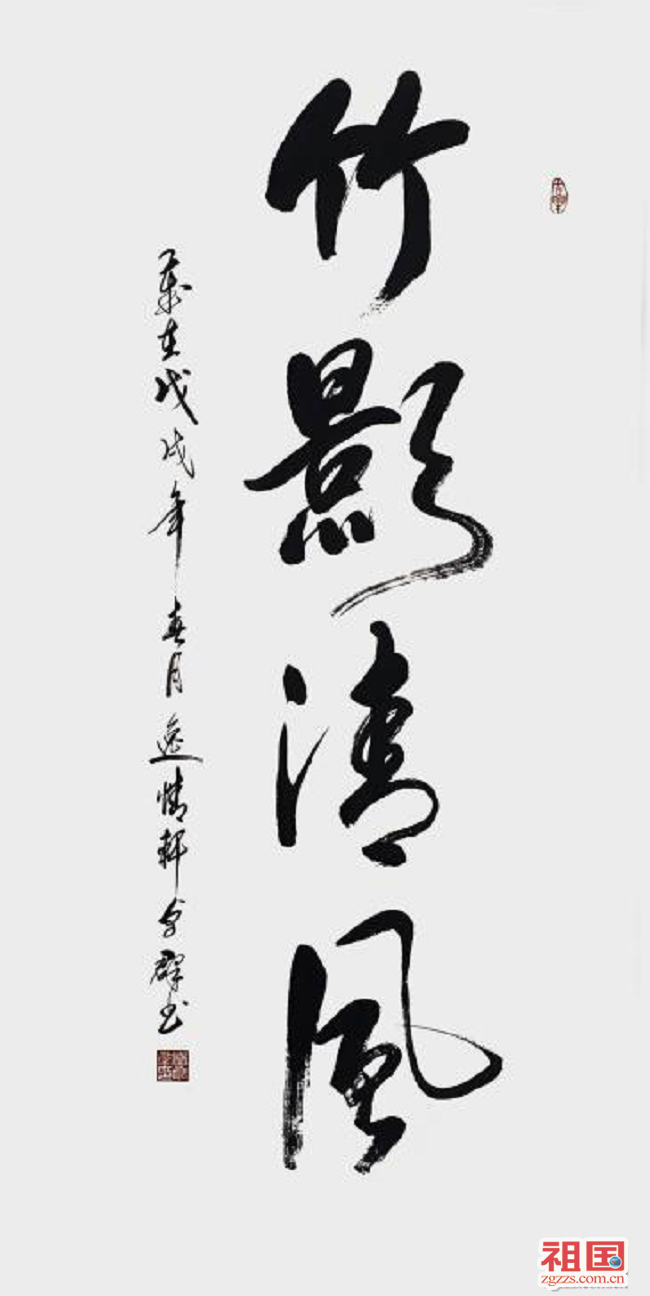 竹影清風
歲在戊戌年春月逸情軒會群书
祖国
zgzzs.com.cn